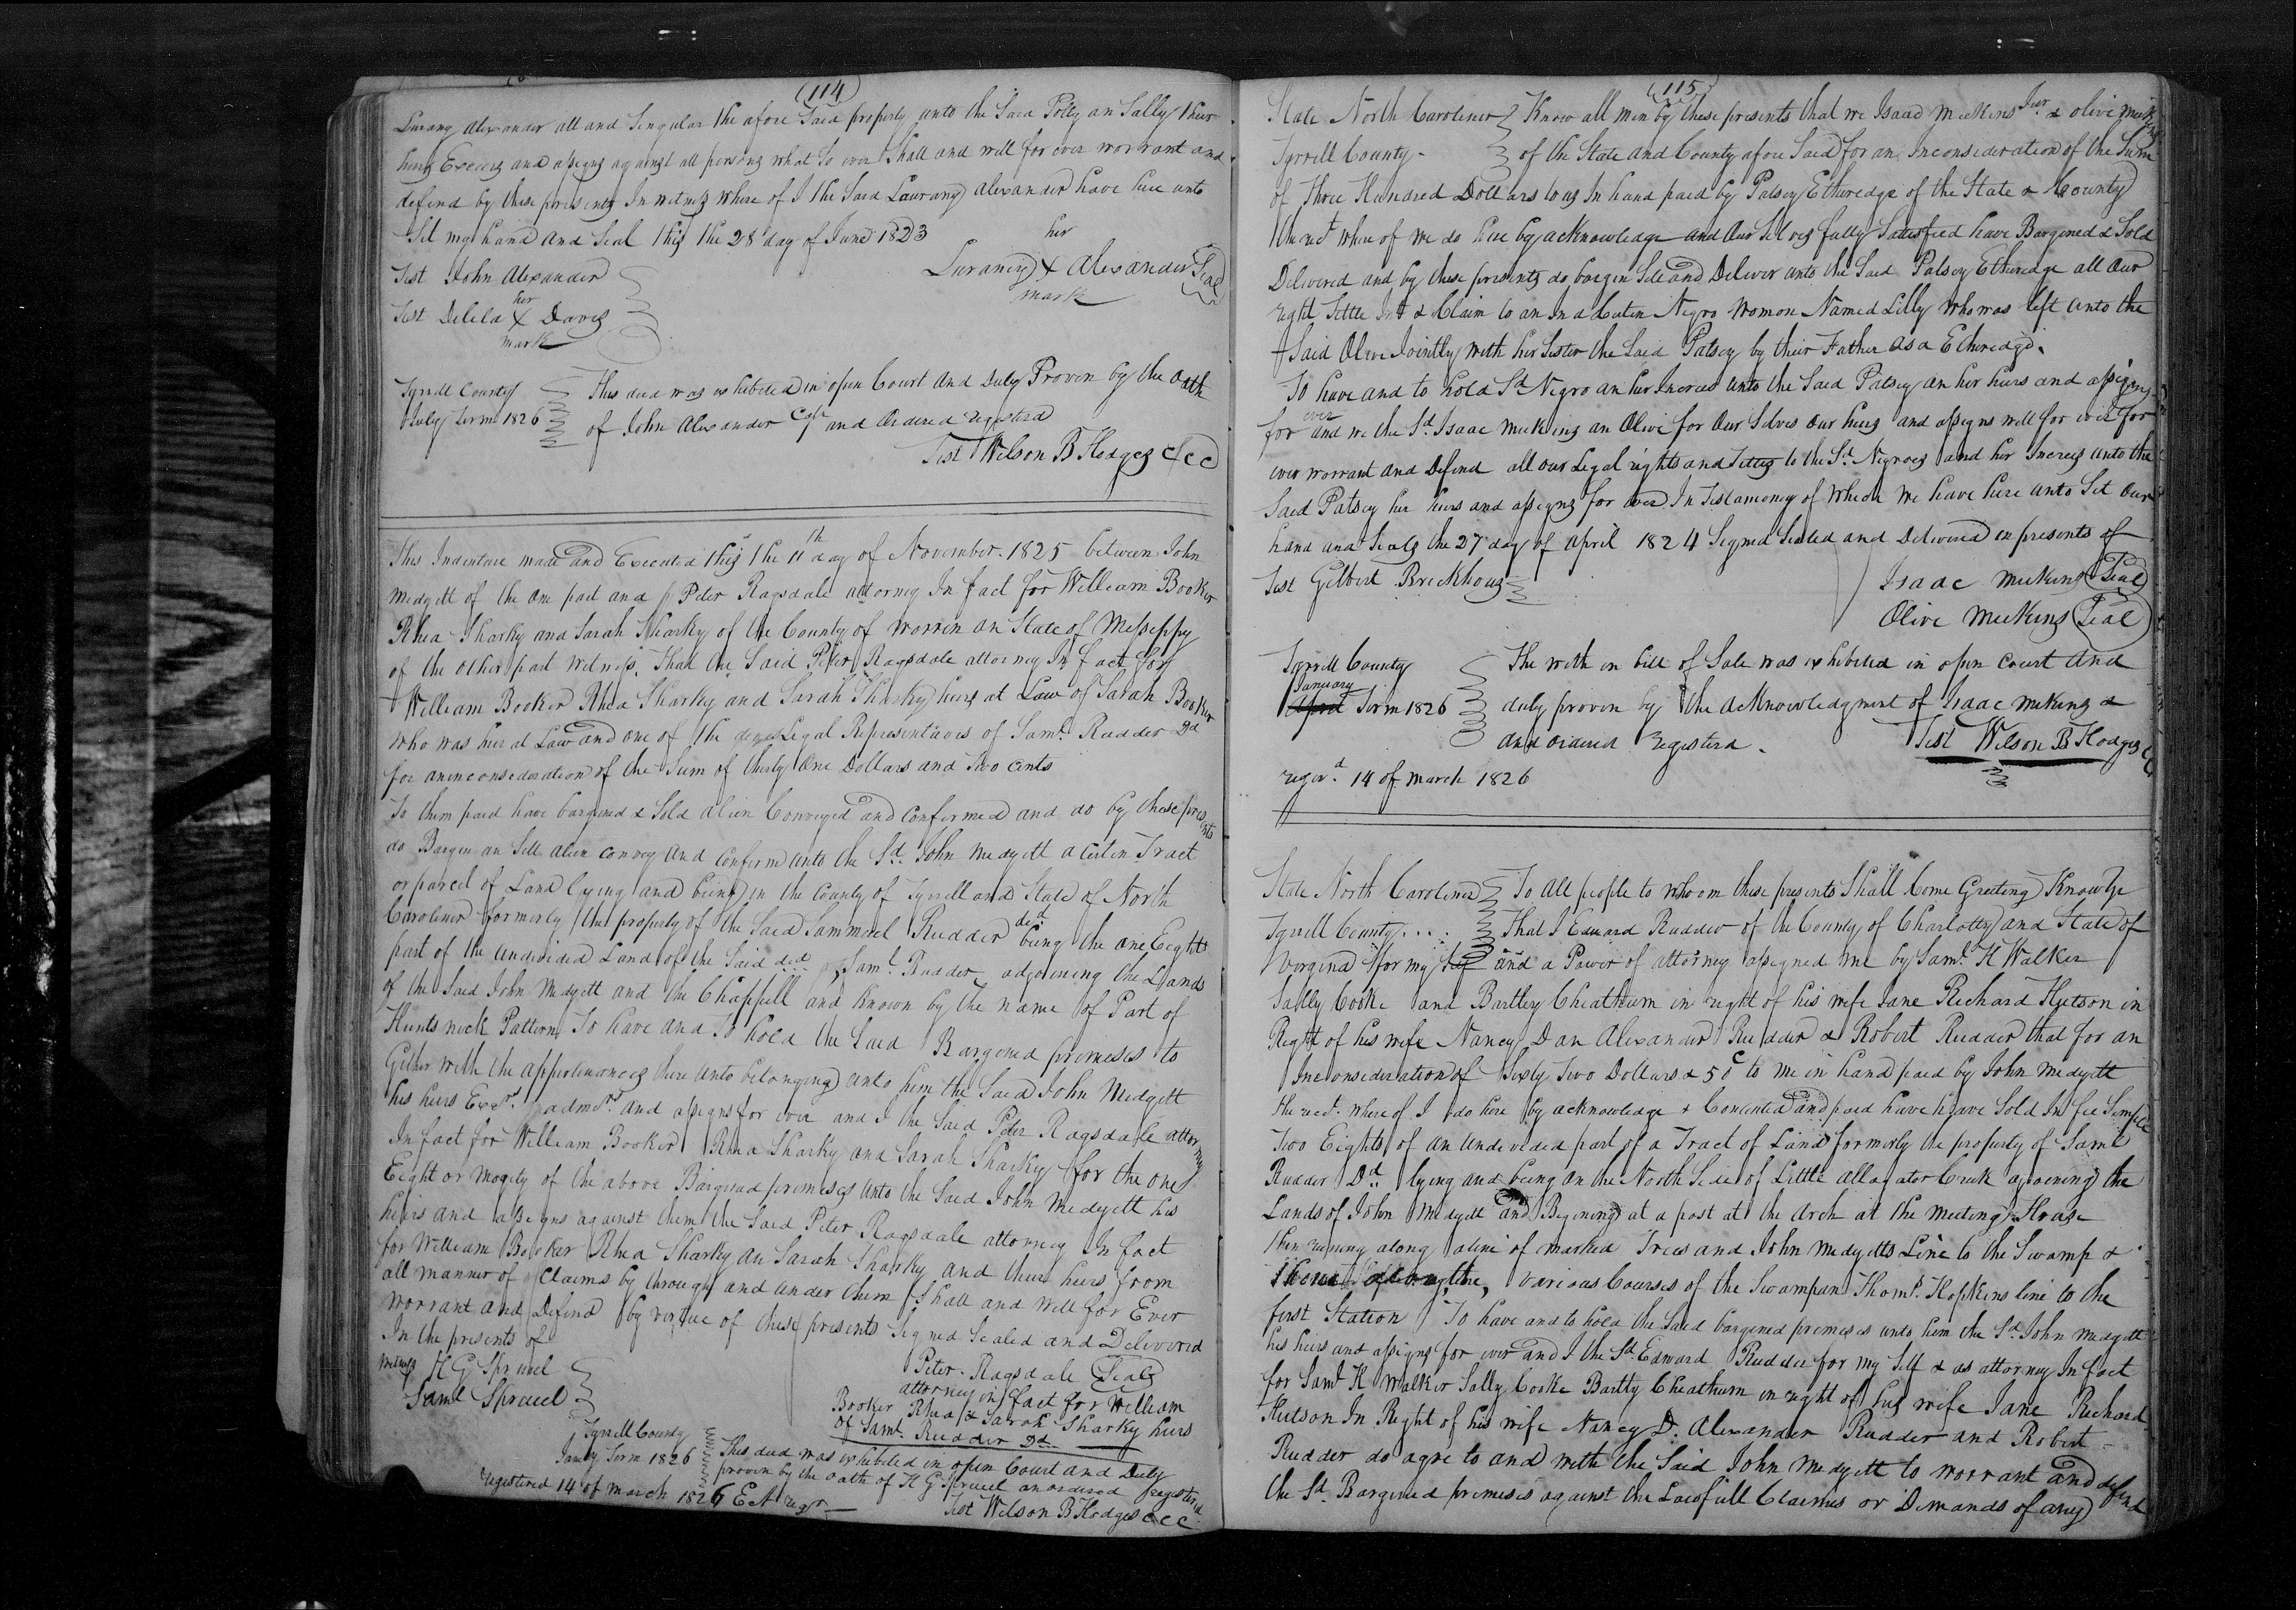 (114)
Lurany Alexander all and Singular the afore Said property unto the Said Polly an Sally their
heirs Execrs and assigns against all persons what So ever Shall and will for ever worrant and
defend by these presents In witness where of I the Said Laurany Alexander have here unto
Set my hand and Seal this the 28 day of June 1823
her
Test John Alexander
Luraney X Alexander Seal
mark
her
Test Delila X Davis
mark
Tyrrell County
July Term 1826
This deed was exhibited in open Court and Duly Proven by the Oath
of John Alexander and Ordered registerd
Test Wilson B Hodges CCC
This Indenture made and Executed this the 11th day of November 1825 between John
Medgett of the One part and Peter Ragsdale attorney In fact for William Booker
Rhea Sharky and Sarah Sharky of the County of Worrin an State of Messeppy
of the other part witness. That the Said Peter Ragsdale attorney In fact for
William Booker Rhea Sharkey and Sarah Sharky heirs at Law of Sarah Booker
who was heir at Law and one of the Legal Representatives of Saml. Rudder Dd
for an inconsederation of the Sum of thirty One Dollars and Two cents
To them paid have bargined & Sold alien Conveyed and Confirmed and do by these presents
do Bargin an Sell alien convey and Confirm unto the Sd. John Medgett a certin Tract
or parcel of Land lying and being in the County of Tyrrell and State of North
Caroliner formerly the property of the Said Sammuel Rudder ded being the one Eights
part of the undivided Land of the Said ded of Saml. Rudder adjoining the Lands
of the Said John Medgett and the Chappell and known by the name of Part of
Hunts neck Pattern To have and To hold the Said Bargined premeses to
Gether with the appertinances there unto belonging unto him the Said John Medgett
his heirs Exrs. admrs. and assigns for ever and I the Said Peter Ragsdale attorney
In fact for William Booker Rhea Sharky and Sarah Sharky for the one
Eight or Mogety of the above Bargined premeses unto the Said John Medgett his
heirs and assigns against them the Said Peter Ragsdale attorney In fact
for William Booker Rhea Sharky an Sarah Sharky and their heirs from
all manner of Claims by through and under them Shall and will for Ever
worrant and Defend by virtue of these presents Signed Sealed and Delivered
In the presents of
Witness H G Spruel
Saml Spruel
Peter Ragsdale Seal
attorney in fact for William
Booker Rhea & Sarah Sharky heirs
of Saml. Rudder Dd.
Tyrrell County
Jany Term 1826
This deed was exhibited in open Court and Duly
proven by the oath of H G Spruel an ordered registerd
registered 14 of march 1826
Test Wilson B Hodges CCC
(115)
State North Caroliner
Tyrrell County
Know all men by these presents that we Isaac Meekins Jur & Olive Meekins
of the State and County afore Said for an Inconsideration of the Sum
of Three Hundred Dollars to us In hand paid by Patsey Etheredge of the State & County
the rect where of we do here by acknowledge and Our Selves fully Satesfied have Bargened & Sold
Delivered and by these presents do bargin Sell and Deliver unto the Said Patsey Etheredge all Our
right Tittle Int & Claim to an In a Certin Negro Womon Named Lilly who was left unto the
Said Olive Jointly with her Sister the Said Patsey by their Father Asa Etheredge.
To have and to hold Sd Negro an her Increes unto the Said Patsey an her heirs and assigns
for ever and we the Sd. Isaac Meekins an Olive for Our Selves Our heirs and assigns will for ever for
ever worrant and Defend all our Legal rights and Tittles to the Sd. Negroes and her Increes unto the
Said Patsey her heirs and assigns for ever In Testamoney of Which we have here unto Set Our
hand and Seals the 27 day of April 1824 Signed Sealed and Delivered in presents of
Test Gilbert Brickhous
Isaac Meekins Seal
Olive Meekins Seal
Tyrrell County
January
April Term 1826
The with in bill of Sale was exhibited in open Court and
duly proven by the acknowledgment of Isaac Mekins &
and ordered registerd.
Test Wilson B Hodges CCC
regard. 14 of march 1826
State North Carolinea
Tyrrell County....
To All people to whoom these presents Shall Come Greeting Know Ye
That I Edward Rudder of the County of Charlotte and State of
Vergenia for my self and a Power of attorney assigned me by Saml. H Walker
Sally Cooke and Bartley Cheathum in right of his wife Jane Richard Hutson in
Right of his wife Nancy D an Alexander Rudder & Robert Rudder that for an
Inconsideration of Sixty Two Dollars & 5 c to me in hand paid by John Medgett
the rect. where of I do here by acknowledge & Concented and paid have have Sold In fee Simple
Two Eights of an undevided part of a Tract of Land formerly the property of Saml
Rudder Dd. lying and being on the North Side of Little Allagator Creek ajoining the
Lands of John Medgett and Begining at a post at the Arch at the Meeting House
then runing along a line of marked Trees and John Medgetts Line to the Swamp &
various Courses of the Swamp an Thoms. Hopkins line to the
first Station To have and to hold the Said bargened premeses unto him the Sd. John Medgett
his heirs and assigns for ever and I the Sd. Edward Rudder for my Self & as attorney In fact
for Saml H Walker Sally Cooke Bartly Cheathum in right of his wife Jane Richard
Hutson In Right of his wife Nancy D. Alexander Rudder and Robert
Rudder do agre to and with the Said John Medgett to worrant and defend
the Sd. Bargened premeses against the Lawfull Claimes or Demands of any